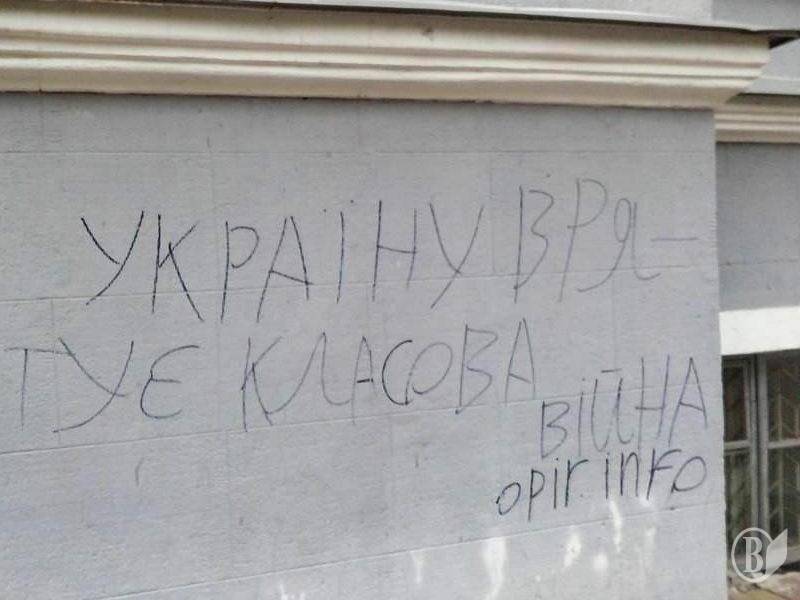 УКРАЇНУ ВРЯ-
ТУЄ КЛАСОВА
ВІЙНА
opir.info
В